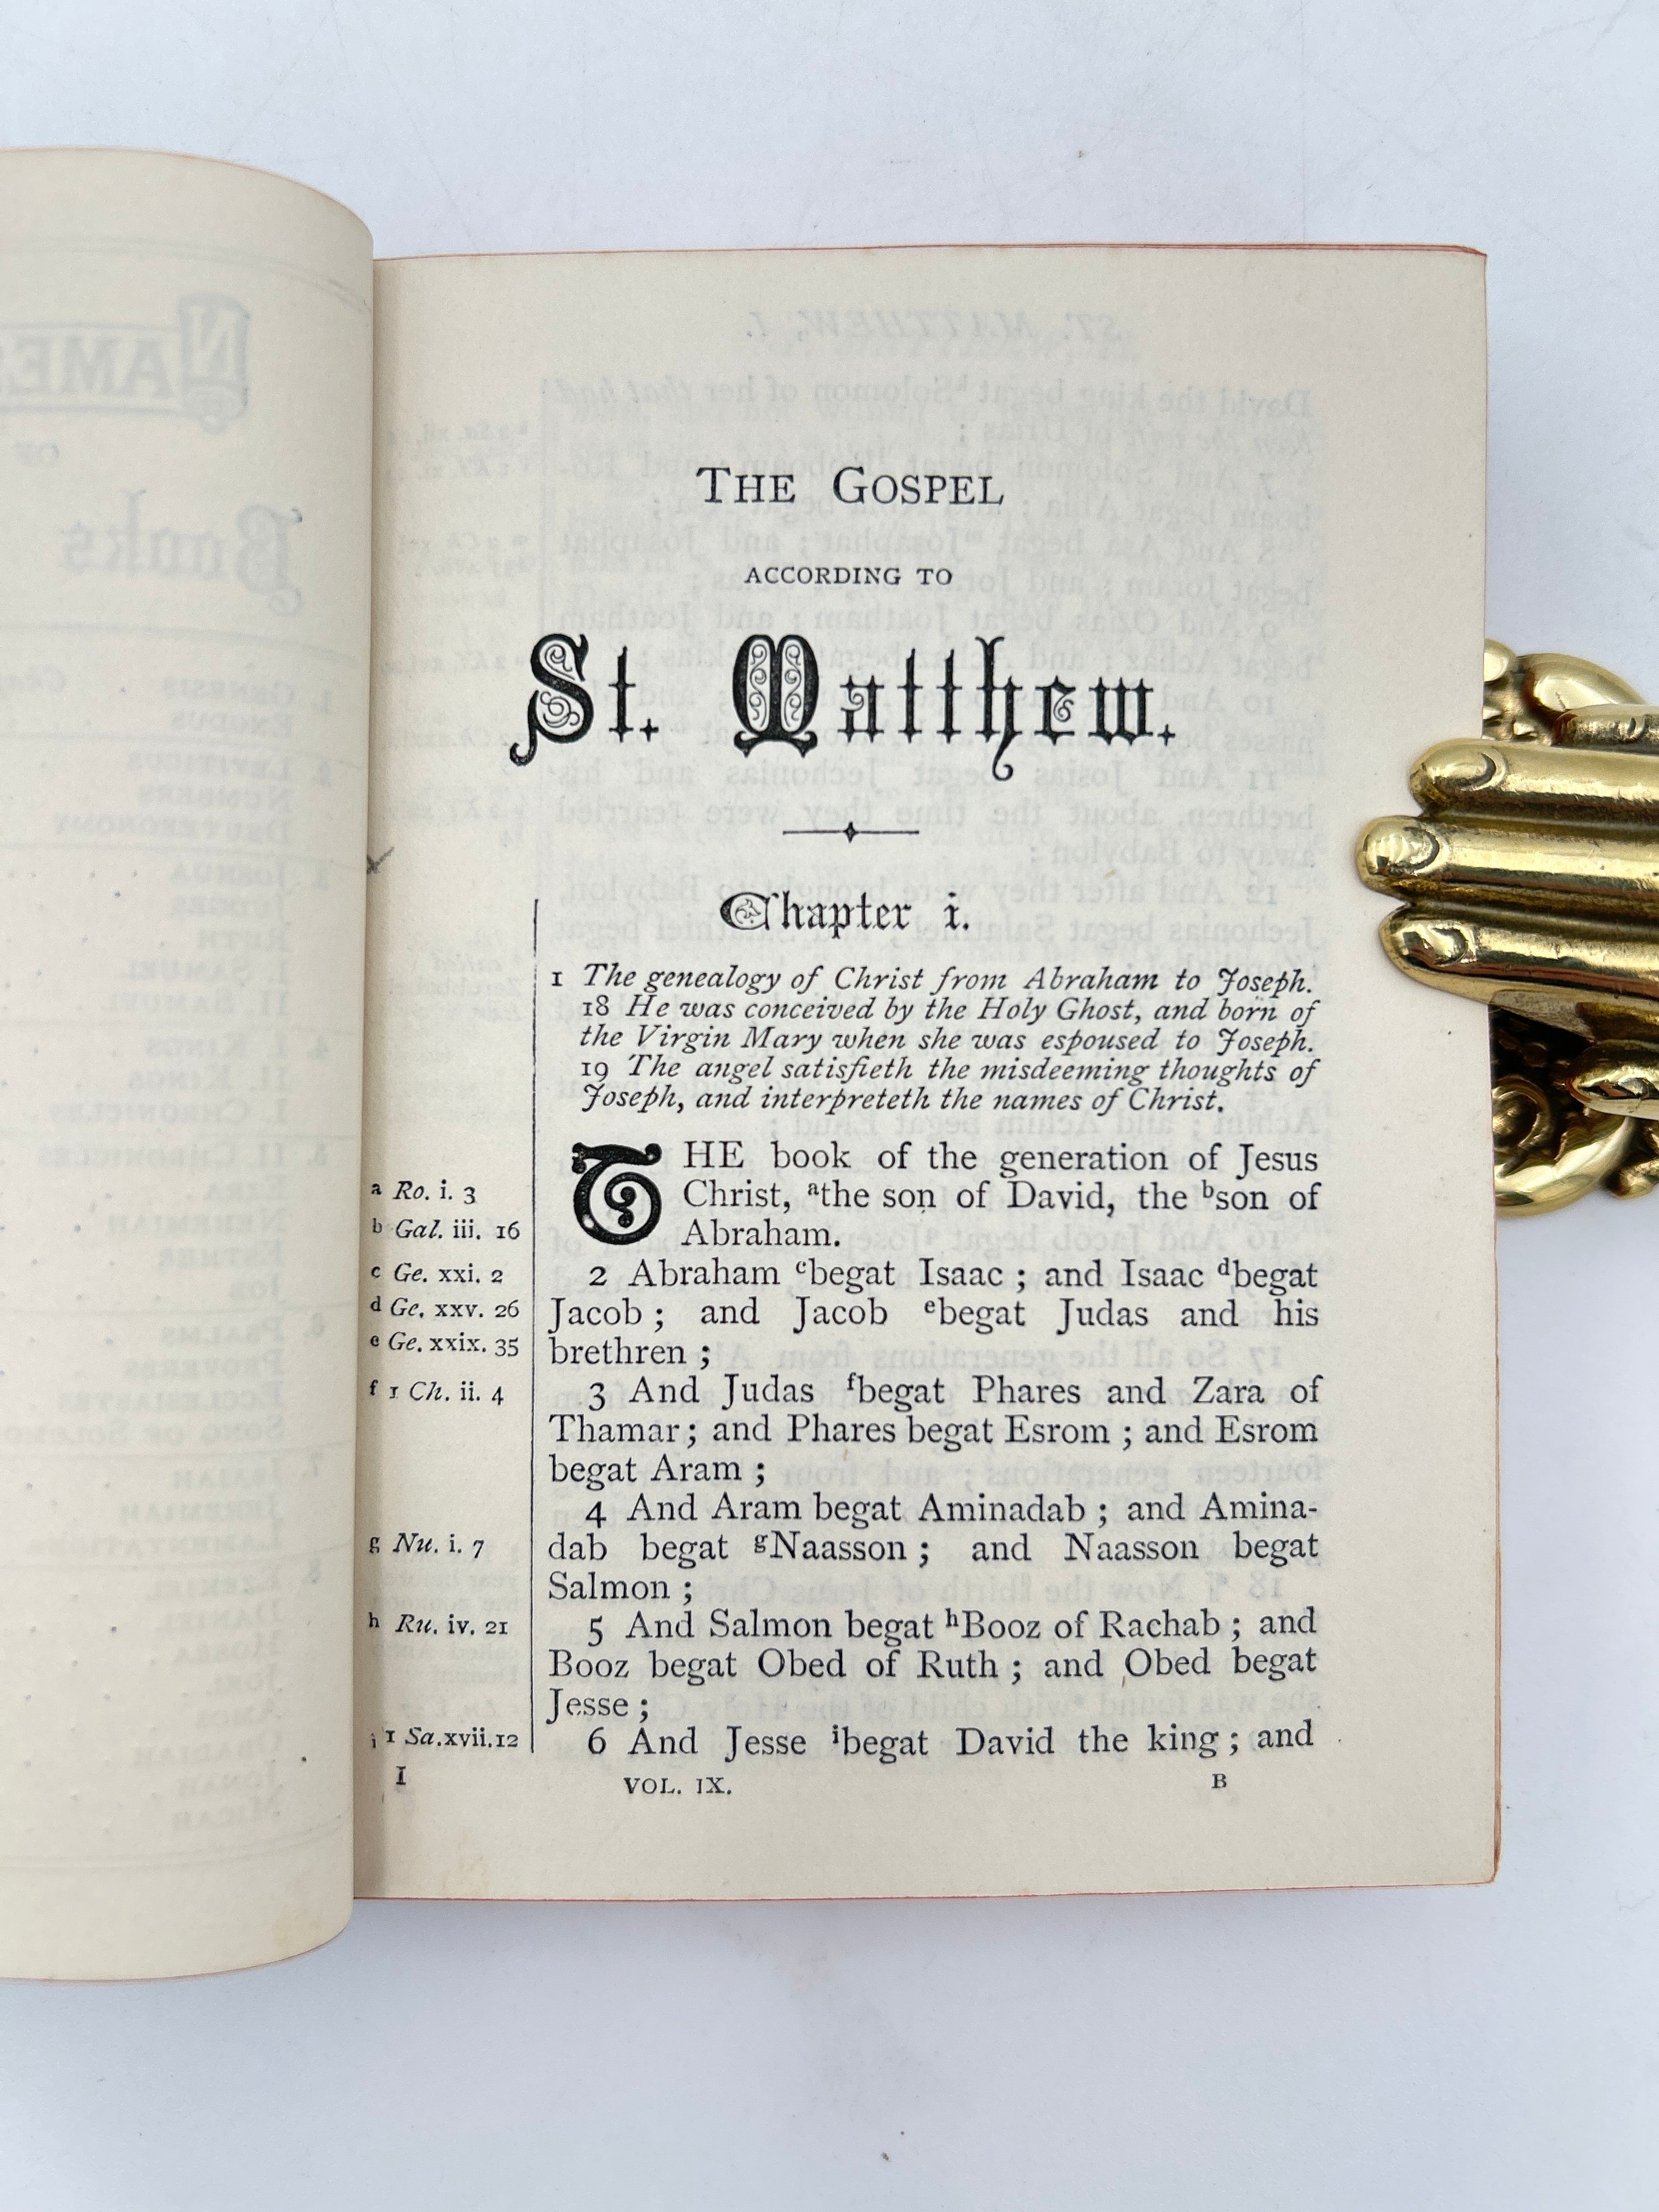 THE GOSPEL
ACCORDING TO
St. Matthew.
Chapter i.
1 The genealogy of Christ from Abraham to Joseph.
18 He was conceived by the Holy Ghost, and born of
the Virgin Mary when she was espoused to Joseph.
19 The angel satisfieth the misdeeming thoughts of
Joseph, and interpreteth the names of Christ.
THE book of the generation of Jesus
Christ, ᵃthe son of David, the ᵇson of
Abraham.
2 Abraham ᶜbegat Isaac ; and Isaac ᵈbegat
Jacob ; and Jacob ᵉbegat Judas and his
brethren ;
3 And Judas ᶠbegat Phares and Zara of
Thamar ; and Phares begat Esrom ; and Esrom
begat Aram ;
4 And Aram begat Aminadab ; and Amina-
dab begat ᵍNaasson ; and Naasson begat
Salmon ;
5 And Salmon begat ʰBooz of Rachab ; and
Booz begat Obed of Ruth ; and Obed begat
Jesse ;
6 And Jesse ⁱbegat David the king ; and
a Ro. i. 3
b Gal. iii. 16
c Ge. xxi. 2
d Ge. xxv. 26
e Ge. xxix. 35
f 1 Ch. ii. 4
g Nu. i. 7
h Ru. iv. 21
i 1 Sa.xvii.12
I
VOL. IX.
B